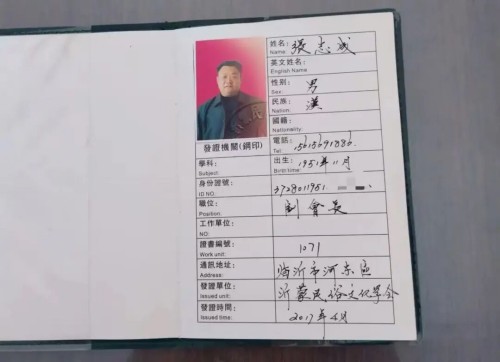 姓名: 張志成
Name:
英文姓名:
English Name
性别: 男
Sec:
民族: 漢
Nation:
國籍:
Nationality:
發證機關(鋼印)
電話: 15615691886.
Tel:
學科:
Subject:
出生: 1951年11月
Birth time:
身份證號: 3728011951
ID NO.
職位: 副會長
Position:
工作單位:
NO:
證書編號: 1071
Work unit:
通訊地址: 临沂市河东區
Address:
發證單位: 沂蒙民俗文化学会
Issued unit:
發證時間: 2017年4月
Issued time: